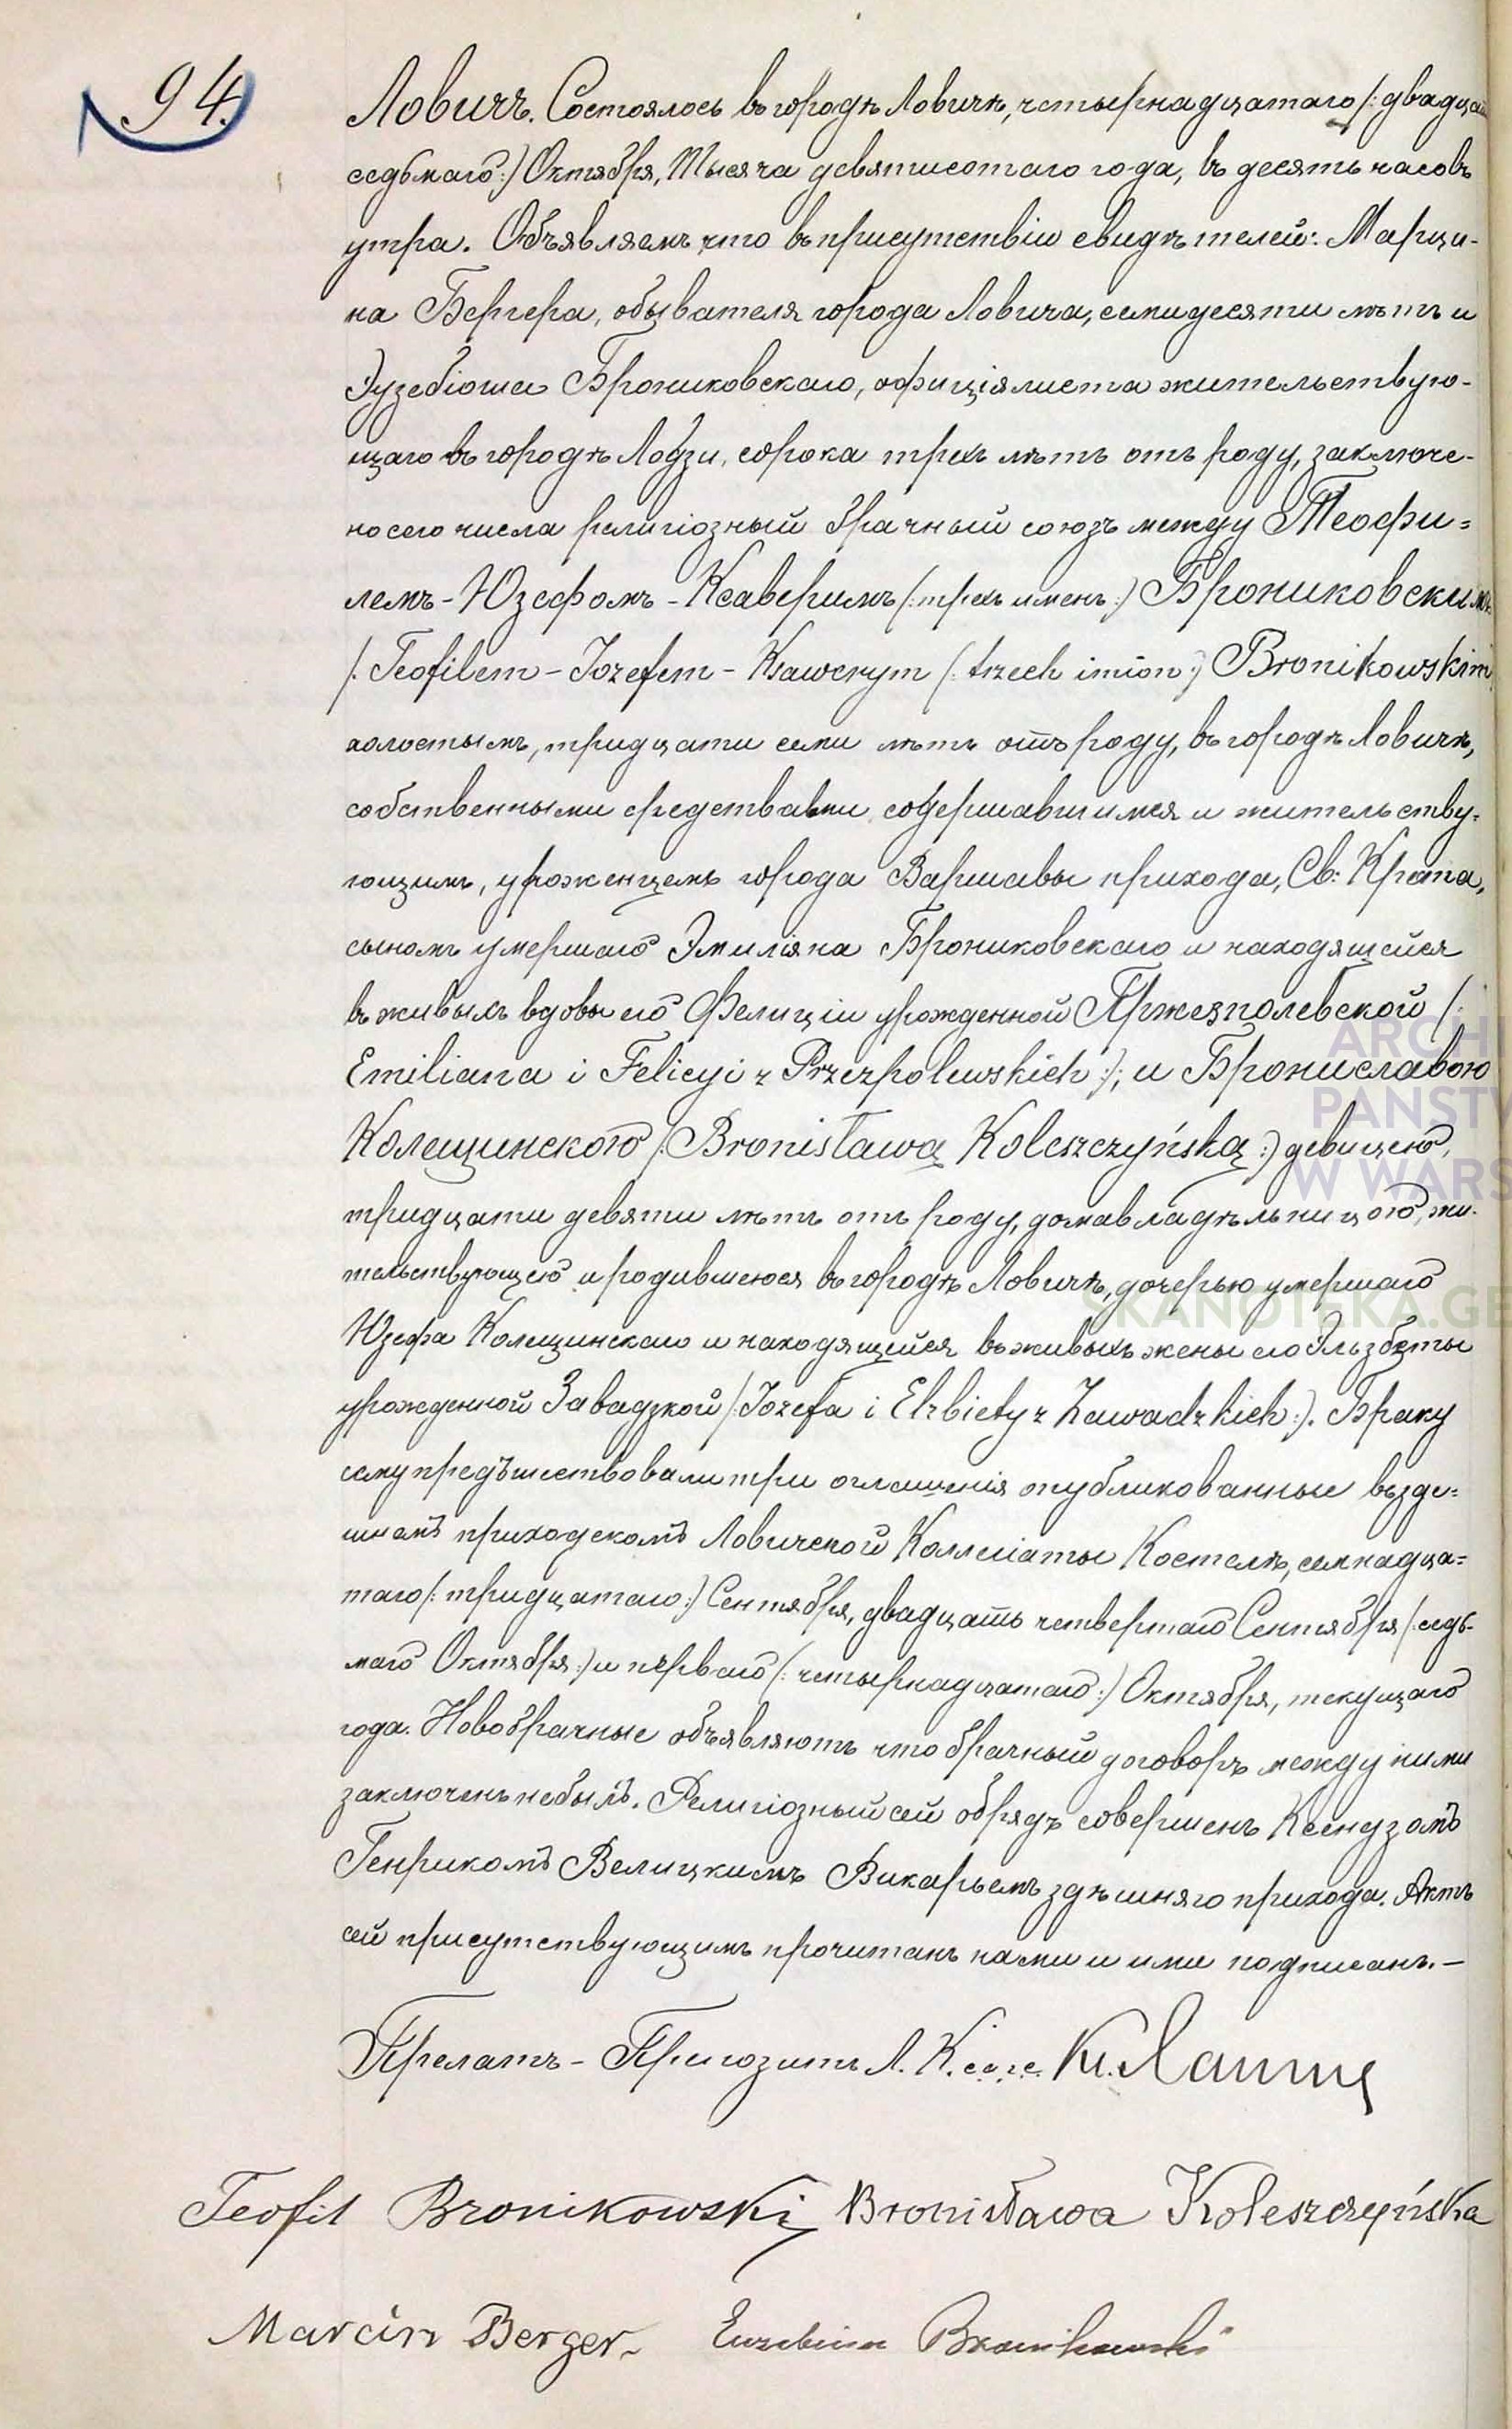 94.
Ловичъ. Состоялось въ городѣ Ловичѣ, четырнадцатаго /:двадцать
седьмаго:/ Октября, Тысяча девятисотаго года, въ десять часовъ
утра. Объявляемъ что въ присутствіи свидѣтелей: Марци-
на Бергера, обывателя города Ловича, семидесяти лѣтъ и
Эузебіюша Брониковскаго, официялиста жительствую-
щаго въ городѣ Лодзи, сорока трехъ лѣтъ отъ роду, заключе-
но сего числа религіозный брачный союзъ между Теофи=
лемъ-Юзефомъ-Ксаверимъ /:трехъ именъ:/ Брониковскимъ
/: Teofilem-Jozefem-Ksawerym /: trzech imion:/ Bronikowskim
холостымъ, тридцати семи лѣтъ отъ роду, въ городѣ Ловичѣ,
собственными средствами содержавшимся и жительству=
ющимъ, уроженцемъ города Варшавы прихода, Св: Креста,
сыномъ умершаго Эмиліяна Брониковскаго и находящейся
въ живыхъ вдовы его Фелиціи урожденной Пржезполевской /:
Emiliana i Felicyi z Przezpolewskich:/; и Брониславою
Колещинскою /:Bronisławą Koleszczyńską:/ девицею,
тридцати девяти лѣтъ отъ роду, домавладѣльницою, жи-
тельствующею и родившеюся въ городѣ Ловичѣ, дочерью умершаго
Юзефа Колещинскаго и находящейся въ живыхъ жены его Эльзбеты
урожденной Завадзкой /:Jozefa i Elzbiety z Zawadzkich:/. Браку
сему предъшествовали три оглашенія опубликованные въ зде=
шнемъ приходскомъ Ловичской Коллегіаты Костелѣ, семнадца=
таго /: тридцатаго:/ Сентября, двадцать четвертаго Сентября /:седь-
маго Октября:/ и перваго /: четырнадцатаго:/ Октября, текущаго
года. Новобрачные объявляютъ что брачный договоръ между ними
заключенъ небылъ. Религіозный сей обрядъ совершенъ Ксендзомъ
Генрикомъ Велицкимъ Викарьемъ здѣшняго прихода. Актъ
сей присутствующимъ прочитанъ нами и ими подписанъ.—
Прелатъ-Препозитъ Л. К. с.о.г.с.
Teofil Bronikowski Bronisława Koleszczyńska
Marcin Berger. Euzebiusz Bronikowski
ARCH
PAŃSTW
W WARS
SKANOTEKA.GE